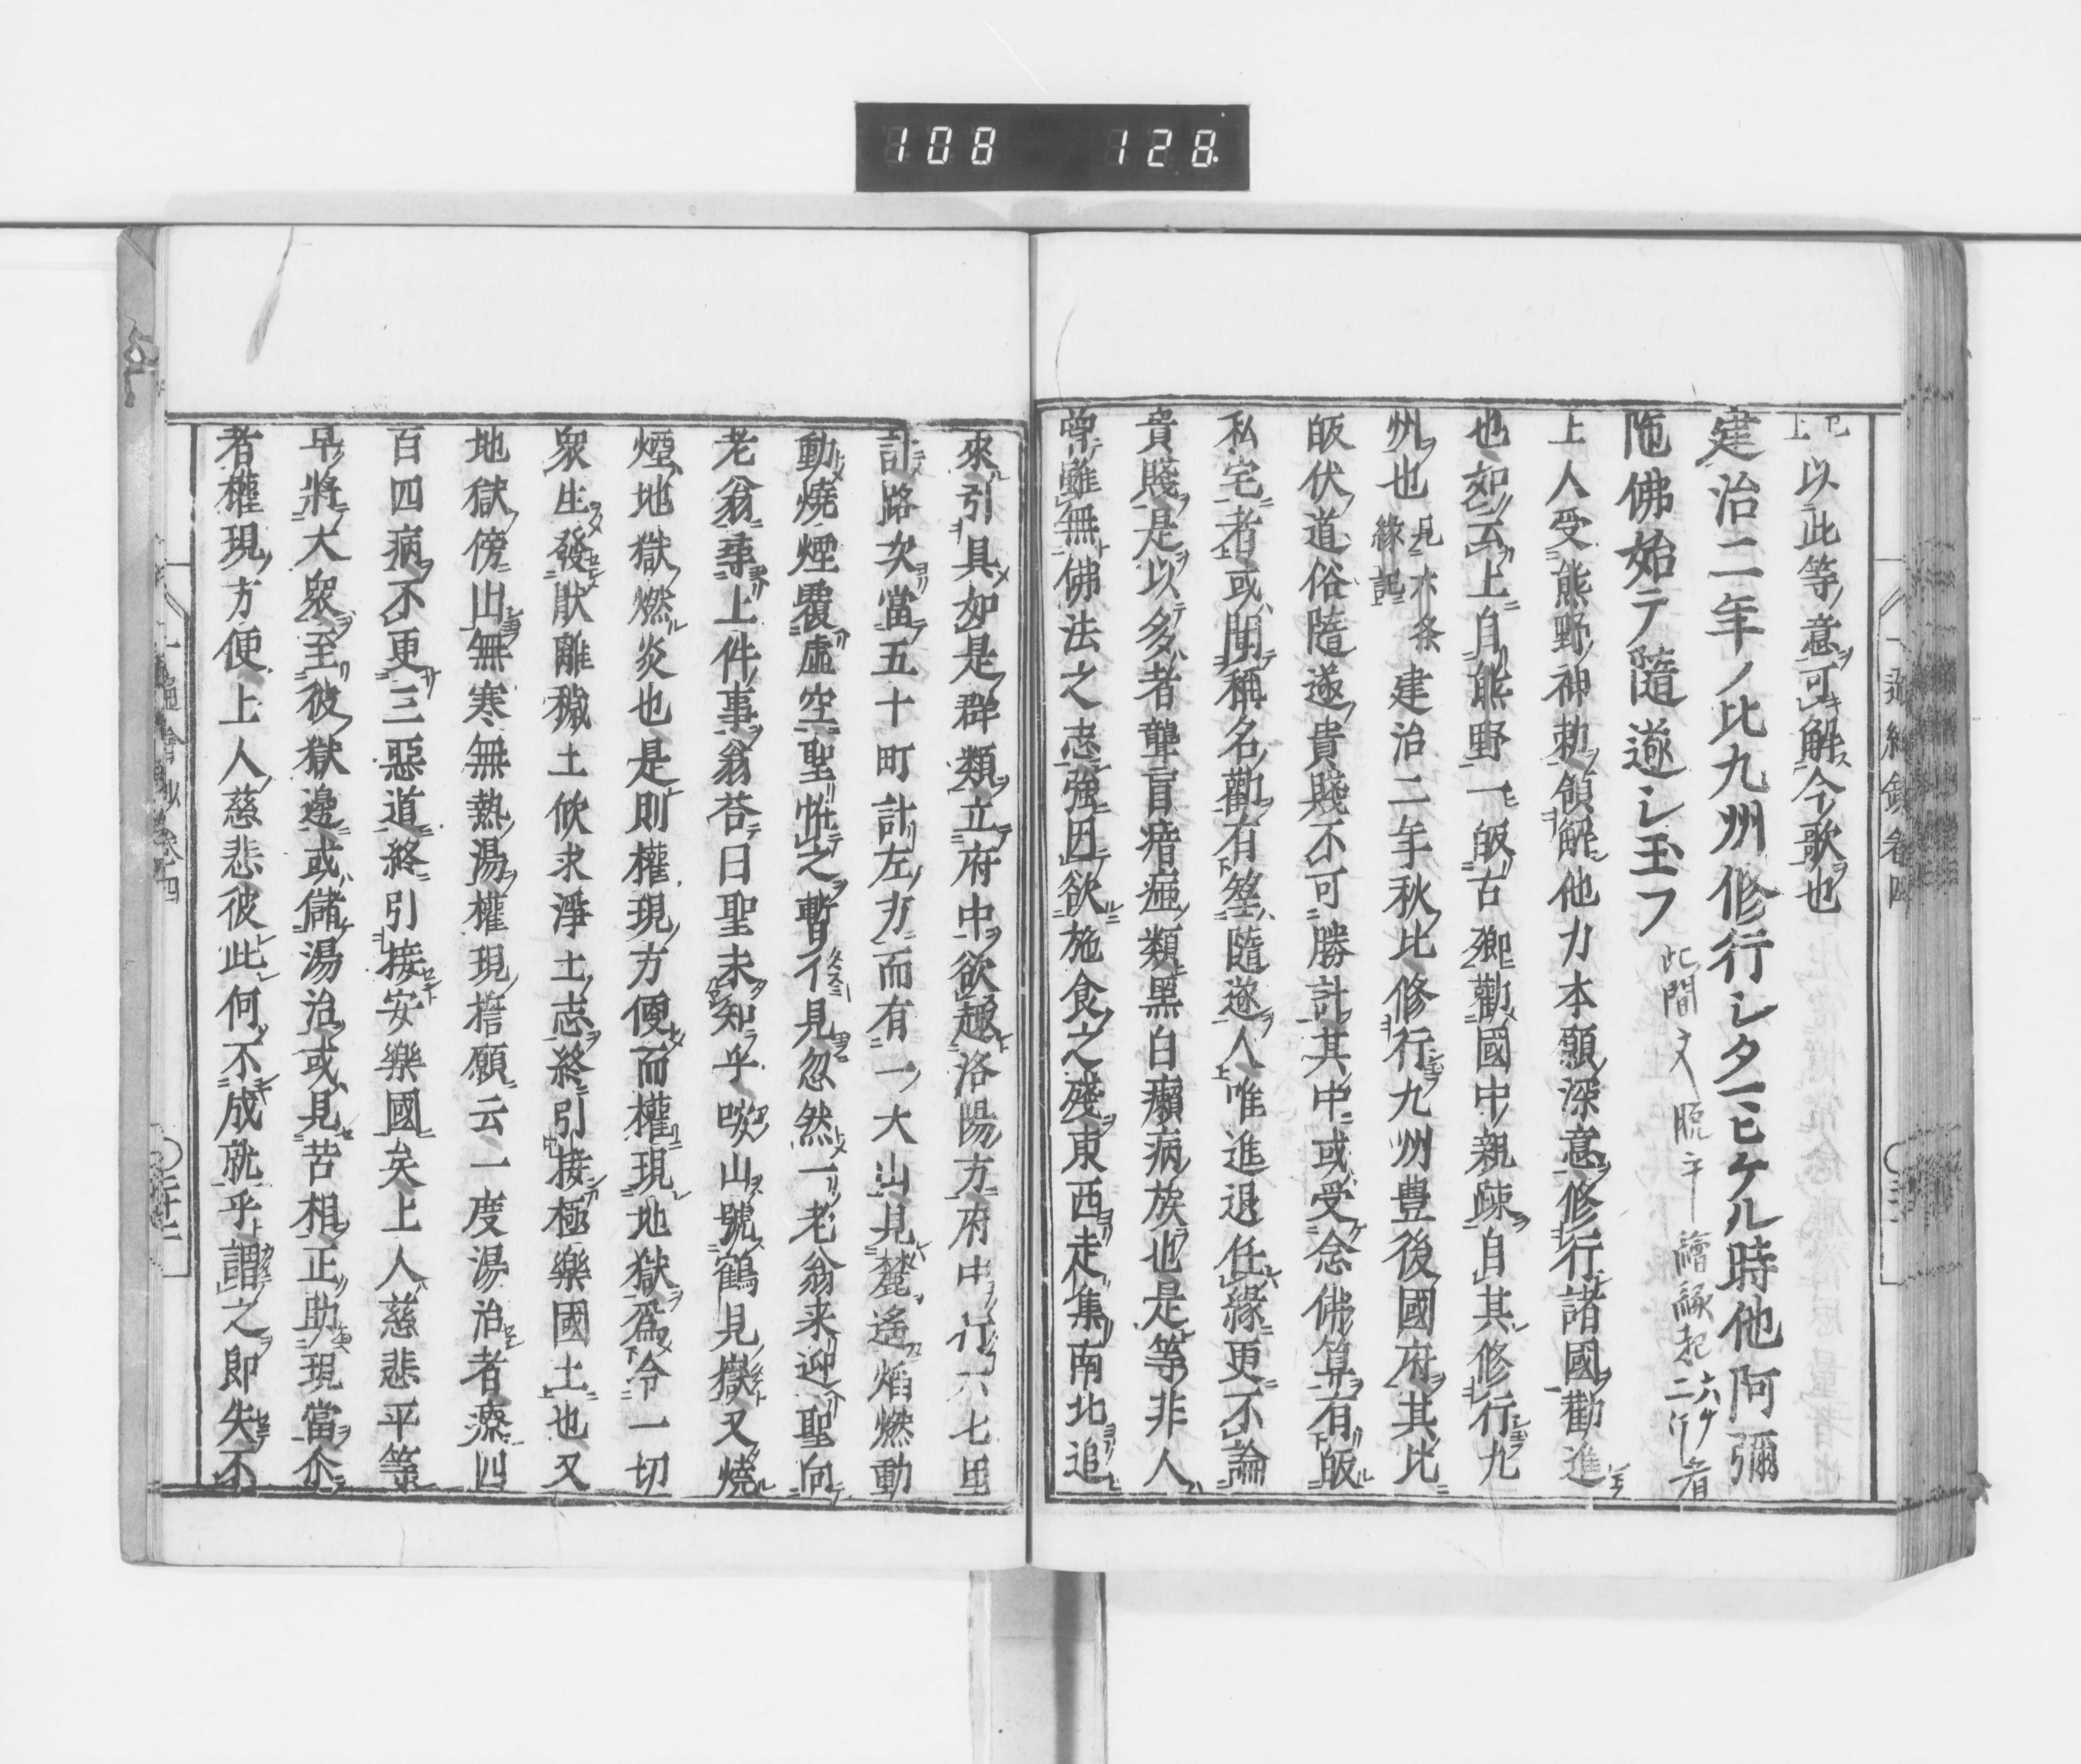 108 128
已上以此等意可解今歌也
建治二年ノ比九州修行シタマヒケル時他阿彌
陁佛始テ隨遂シ玉フ 此間文脱乎繪縁起六ヶ二行者
上人受熊野神勅領解他力本願深意修行諸國勸進
也如云上自熊野一皈古鄕勸國中親疎自其修行九
州也見六条縁記建治二年秋比修行九州豊後國府其比
皈伏道俗隨遂貴賤不可勝計其中或受念佛算有皈
私宅者或聞稱名勸有筌隨遂人唯進退任緣更不論
貴賤是以多者聾盲瘖瘂類黑白癩病族也是等非人
曾雖無佛法之志強因欲施食之殘東西走集南北追
來引具如是群類立府中欲趣洛陽方府中行六七里
計路次當五十町計左方而有一大山見麓遙焔燃動
動燒煙覆虛空聖恠之暫イ見忽然一老翁来迎聖向
老翁尋上件事翁荅曰聖未知乎啖山號鶴見嶽又燒
煙地獄燃炎也是則權現方便而權現地獄爲令一切
衆生發猒離穢土欣求淨土志終引接極樂國土也又
地獄傍出無寒無熱湯權現誓願云一度湯治者療四
百四病不更三惡道終引接安樂國矣上人慈悲平等
早將大衆至彼獄邊或儲湯治或見苦相正助現當企
者權現方便上人慈悲彼此何不成就乎謂之即失不